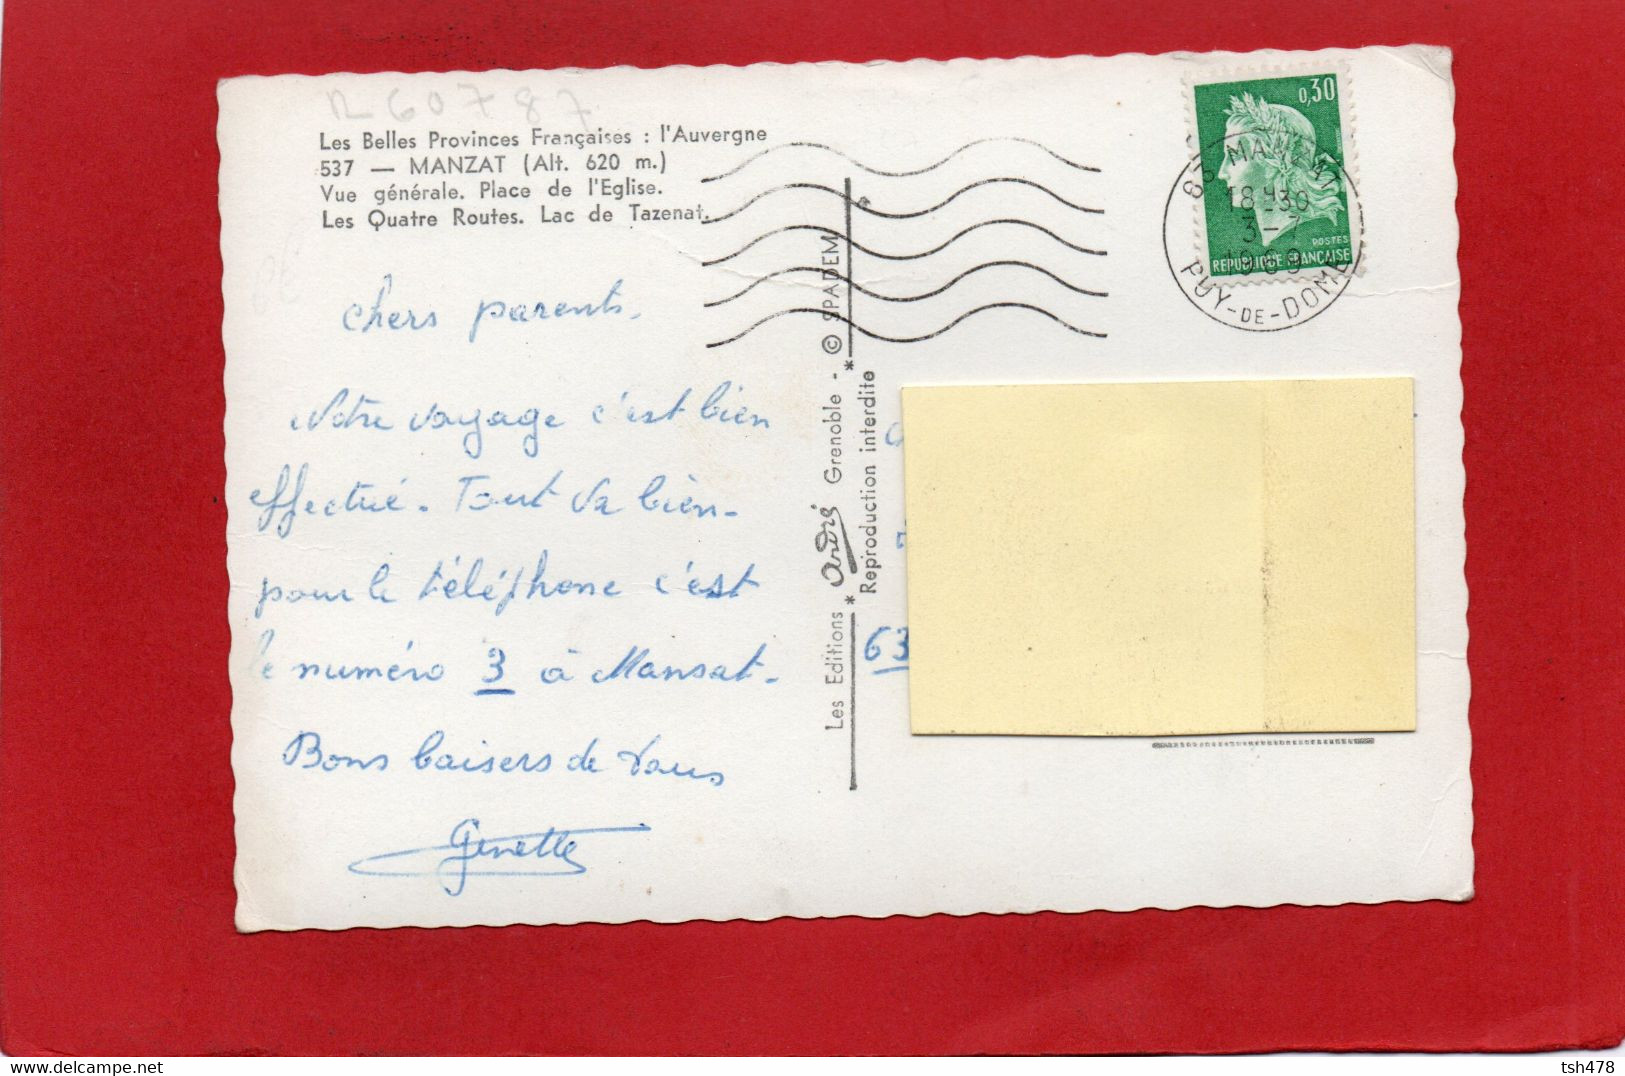 R 60787
Les Belles Provinces Françaises : l'Auvergne
537 — MANZAT (Alt. 620 m.)
Vue générale. Place de l'Eglise.
Les Quatre Routes. Lac de Tazenat.
chers parents.
Notre voyage c'est bien
effectué. Tout va bien-
pour le téléphone c'est
le numéro 3 à Mansat-
Bons baisers de vous
Ginette
Les Editions * André Grenoble - © SPADEM *
Reproduction interdite
0,30
POSTES
REPUBLIQUE FRANÇAISE
63 MANZAT
18 H 30
3 - 7
1969
PUY-DE-DOME
63
tsh478